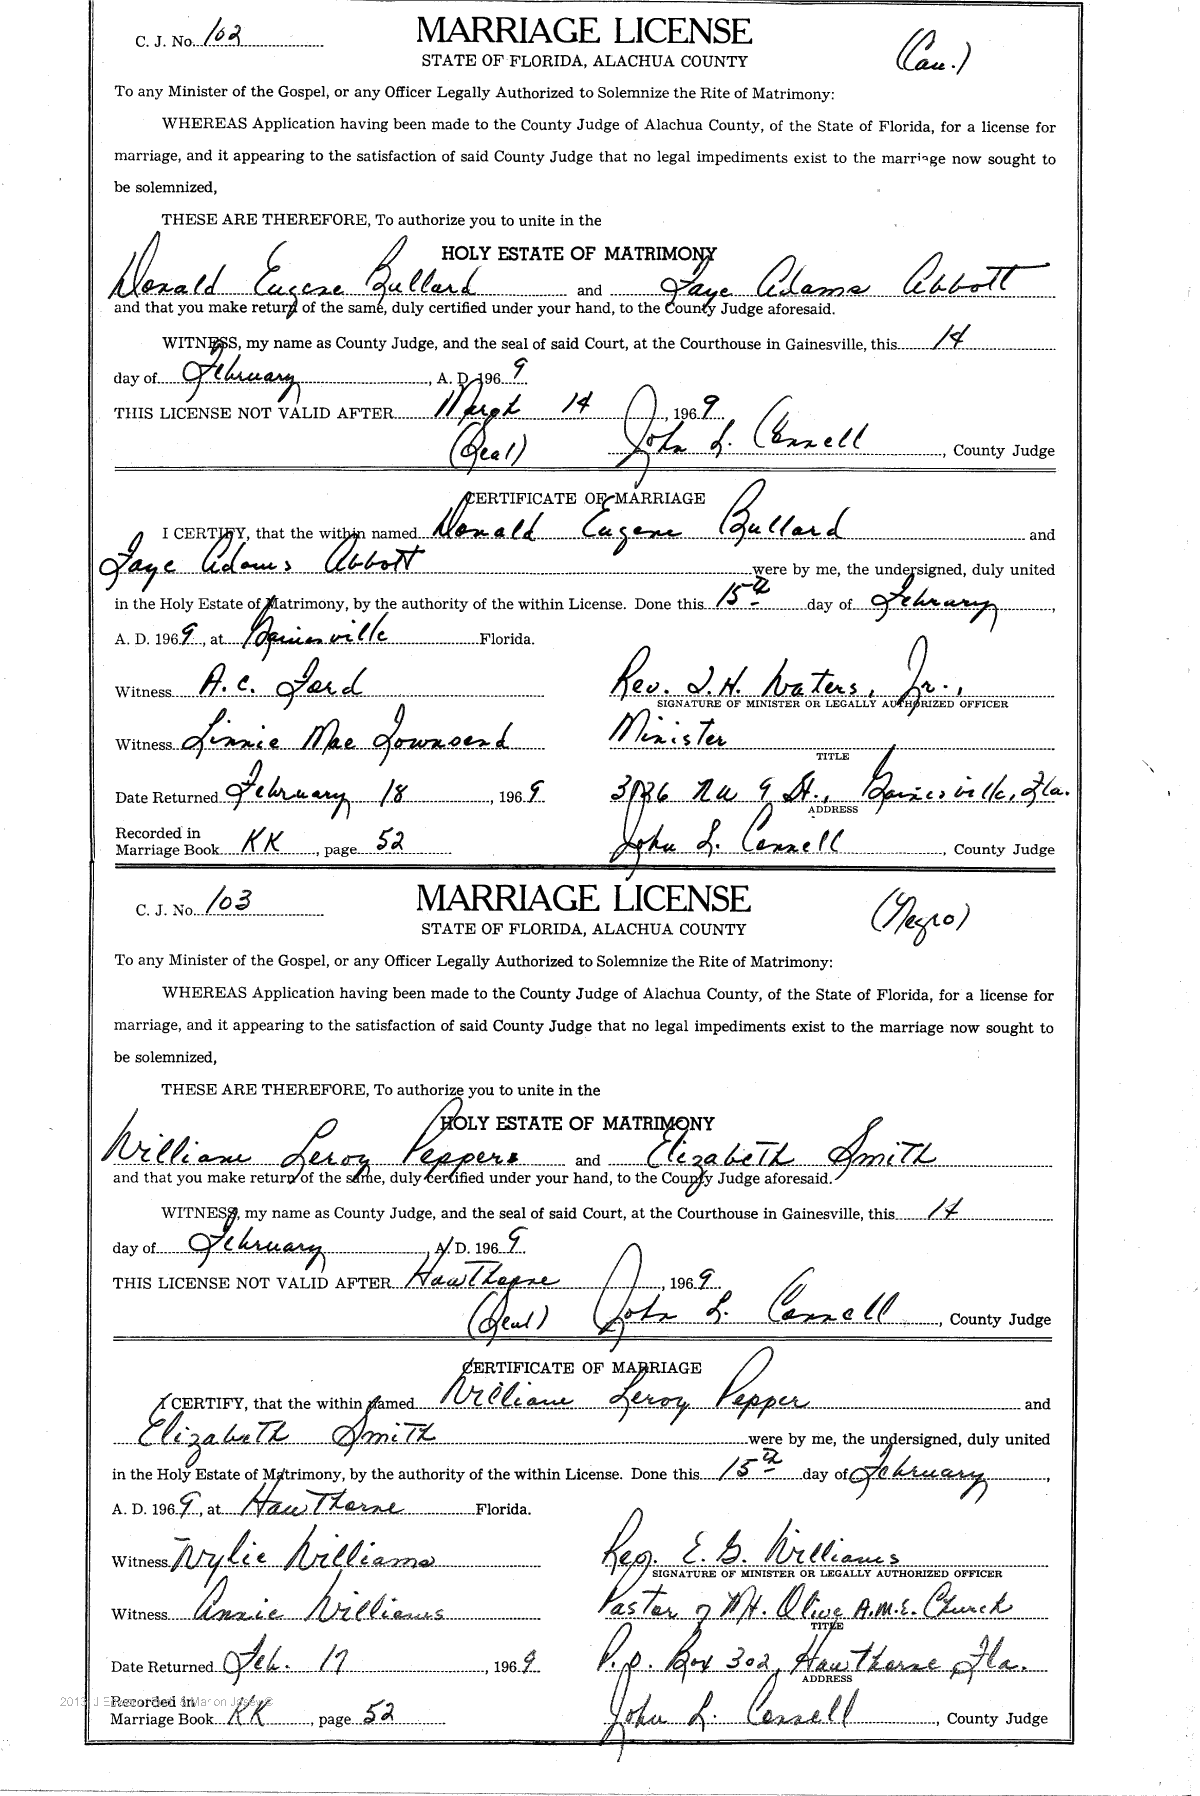 C. J. No. 102
MARRIAGE LICENSE
(Cau.)
STATE OF FLORIDA, ALACHUA COUNTY
To any Minister of the Gospel, or any Officer Legally Authorized to Solemnize the Rite of Matrimony:
WHEREAS Application having been made to the County Judge of Alachua County, of the State of Florida, for a license for
marriage, and it appearing to the satisfaction of said County Judge that no legal impediments exist to the marriage now sought to
be solemnized,
THESE ARE THEREFORE, To authorize you to unite in the
HOLY ESTATE OF MATRIMONY
Donald Eugene Bullard and Faye Adams Abbott
and that you make return of the same, duly certified under your hand, to the County Judge aforesaid.
WITNESS, my name as County Judge, and the seal of said Court, at the Courthouse in Gainesville, this 14
day of February, A. D. 1969
THIS LICENSE NOT VALID AFTER March 14, 1969
(Seal) John L. Connell, County Judge
CERTIFICATE OF MARRIAGE
I CERTIFY, that the within named Donald Eugene Bullard and
Faye Adams Abbott were by me, the undersigned, duly united
in the Holy Estate of Matrimony, by the authority of the within License. Done this 15th day of February,
A. D. 1969, at Gainesville Florida.
Witness A. C. Ford Rev. T. H. Waters, Jr.,
SIGNATURE OF MINISTER OR LEGALLY AUTHORIZED OFFICER
Witness Linnie Mae Townsend Minister
TITLE
Date Returned February 18, 1969 NW 9 St., Gainesville, Fla.
ADDRESS
Recorded in
Marriage Book KK, page 52 John L. Connell, County Judge
C. J. No. 103
MARRIAGE LICENSE
(Negro)
STATE OF FLORIDA, ALACHUA COUNTY
To any Minister of the Gospel, or any Officer Legally Authorized to Solemnize the Rite of Matrimony:
WHEREAS Application having been made to the County Judge of Alachua County, of the State of Florida, for a license for
marriage, and it appearing to the satisfaction of said County Judge that no legal impediments exist to the marriage now sought to
be solemnized,
THESE ARE THEREFORE, To authorize you to unite in the
HOLY ESTATE OF MATRIMONY
William Leroy Peppers and Elizabeth Smith
and that you make return of the same, duly certified under your hand, to the County Judge aforesaid.
WITNESS, my name as County Judge, and the seal of said Court, at the Courthouse in Gainesville, this 14
day of February, A. D. 1969
THIS LICENSE NOT VALID AFTER Hawthorne, 1969
(Seal) John L. Connell, County Judge
CERTIFICATE OF MARRIAGE
I CERTIFY, that the within named William Leroy Pepper and
Elizabeth Smith were by me, the undersigned, duly united
in the Holy Estate of Matrimony, by the authority of the within License. Done this 15th day of February,
A. D. 1969, at Hawthorne Florida.
Witness Wylie Williams Reg. E. G. Williams
SIGNATURE OF MINISTER OR LEGALLY AUTHORIZED OFFICER
Witness Annie Williams Pastor of Mt. Olive A.M.E. Church
TITLE
Date Returned Feb. 17, 1969 P.O. Box 302, Hawthorne Fla.
ADDRESS
Recorded in
Marriage Book KK, page 52 John L. Connell, County Judge